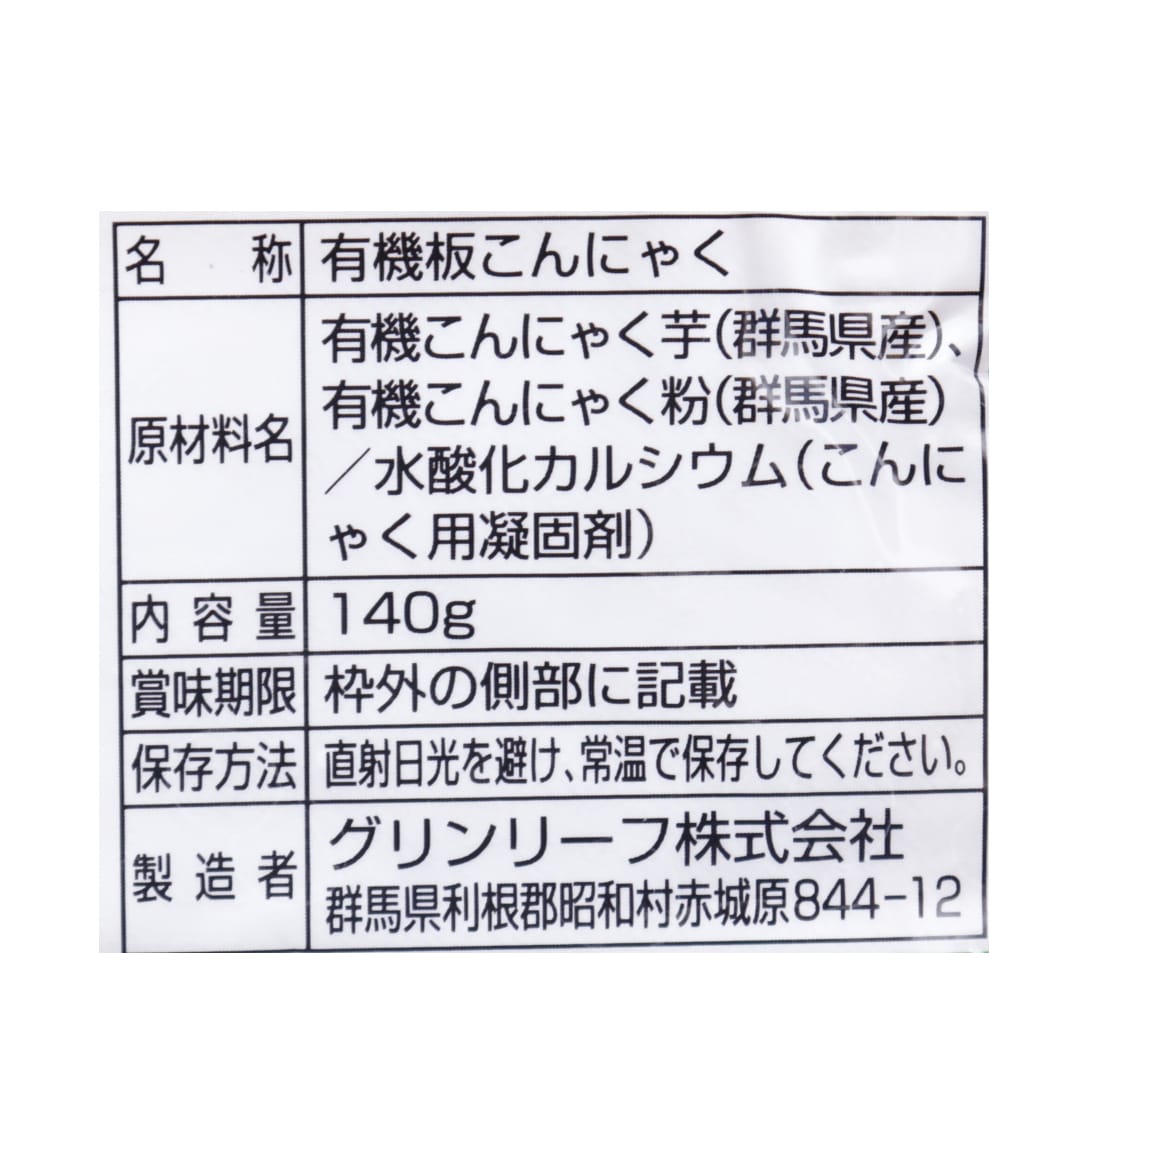 名称 有機板こんにゃく
原材料名 有機こんにゃく芋(群馬県産)、
有機こんにゃく粉(群馬県産)
／水酸化カルシウム(こんに
ゃく用凝固剤)
内容量 140g
賞味期限 枠外の側部に記載
保存方法 直射日光を避け、常温で保存してください。
製造者 グリンリーフ株式会社
群馬県利根郡昭和村赤城原844-12